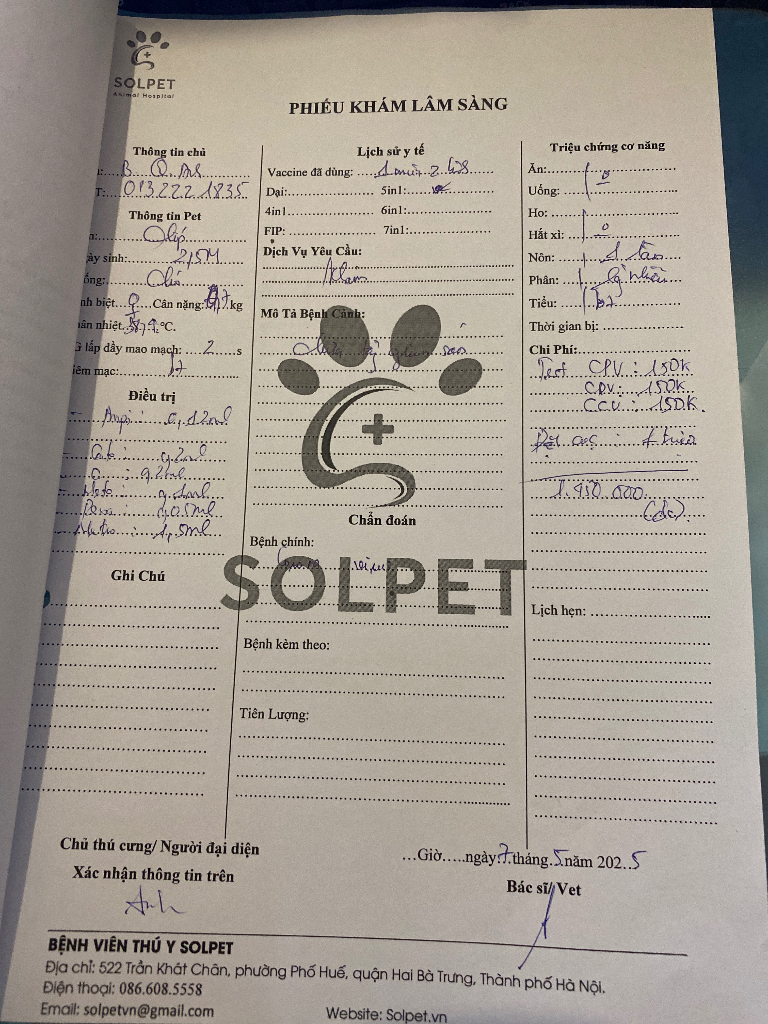 SOLPET
Animal Hospital
PHIẾU KHÁM LÂM SÀNG
Thông tin chủ
B
T: 013222 1835
Thông tin Pet
Olip
ày sinh: 2,5M
ống: Chó
nh biệt: ♀ Cân nặng: kg
ân nhiệt: °C.
G lấp đầy mao mạch: 2 s
iêm mạc:
Điều trị
- Ampi: 0,12ml
0,2ml
0,2ml
ml
0,05ml
- Metro: 1,5ml
Ghi Chú
Lịch sử y tế
Vaccine đã dùng: 1 mũi
Dại: 5in1:
4in1 6in1:
FIP: 7in1:
Dịch Vụ Yêu Cầu:
Khám
Mô Tả Bệnh Cảnh:
SOLPET
Chẩn đoán
Bệnh chính:
viêm
Bệnh kèm theo:
Tiên Lượng:
Triệu chứng cơ năng
Ăn:
Uống:
Ho:
Hắt xì:
Nôn: 1 lần
Phân:
Tiểu: bt
Thời gian bị:
Chi Phí:
Test CPV: 150K
CDV: 150K
CCV: 150K.
Đặt cọc: 1 triệu
1.450.000
Lịch hẹn:
Chủ thú cưng/ Người đại diện
Xác nhận thông tin trên
Anh
...Giờ.....ngày 7 tháng 5 năm 2025
Bác sĩ/ Vet
BỆNH VIỆN THÚ Y SOLPET
Địa chỉ: 522 Trần Khát Chân, phường Phố Huế, quận Hai Bà Trưng, Thành phố Hà Nội.
Điện thoại: 086.608.5558
Email: solpetvn@gmail.com Website: Solpet.vn